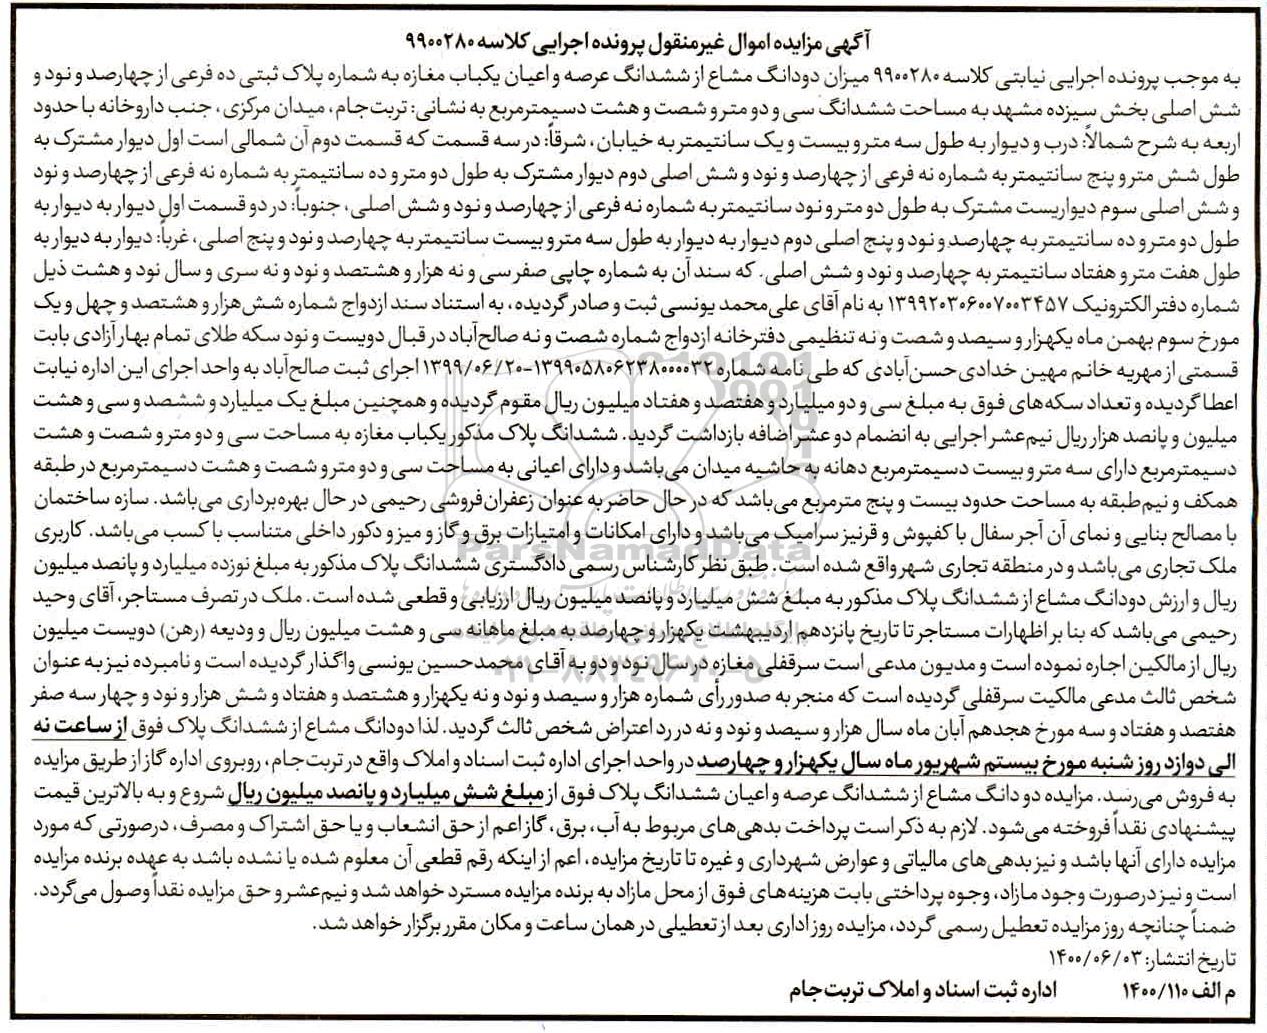 آگهی مزایده اموال غیرمنقول پرونده اجرایی کلاسه ۹۹۰۰۲۸۰
به موجب پرونده اجرایی نیابتی کلاسه ۹۹۰۰۲۸۰ میزان دودانگ مشاع از ششدانگ عرصه و اعیان یکباب مغازه به شماره پلاک ثبتی ده فرعی از چهارصد و نود و
شش اصلی بخش سیزده مشهد به مساحت ششدانگ سی و دو متر و شصت و هشت دسیمترمربع به نشانی: تربت‌جام، میدان مرکزی، جنب داروخانه با حدود
اربعه به شرح شمالاً: درب و دیوار به طول سه متر و بیست و یک سانتیمتر به خیابان، شرقاً: در سه قسمت که قسمت دوم آن شمالی است اول دیوار مشترک به
طول شش متر و پنج سانتیمتر به شماره نه فرعی از چهارصد و نود و شش اصلی دوم دیوار مشترک به طول دو متر و ده سانتیمتر به شماره نه فرعی از چهارصد و نود
و شش اصلی سوم دیواریست مشترک به طول دو متر و نود سانتیمتر به شماره نه فرعی از چهارصد و نود و شش اصلی، جنوباً: در دو قسمت اول دیوار به دیوار به
طول دو متر و ده سانتیمتر به چهارصد و نود و پنج اصلی دوم دیوار به دیوار به طول سه متر و بیست سانتیمتر به چهارصد و نود و پنج اصلی، غرباً: دیوار به دیوار به
طول هفت متر و هفتاد سانتیمتر به چهارصد و نود و شش اصلی. که سند آن به شماره چاپی صفر سی و نه هزار و هشتصد و نود و نه سری و سال نود و هشت ذیل
شماره دفتر الکترونیک ۱۳۹۹۲۰۳۰۶۰۰۷۰۰۳۴۵۷ به نام آقای علی‌محمد یونسی ثبت و صادر گردیده، به استناد سند ازدواج شماره شش‌هزار و هشتصد و چهل و یک
مورخ سوم بهمن ماه یکهزار و سیصد و شصت و نه تنظیمی دفترخانه ازدواج شماره شصت و نه صالح‌آباد در قبال دویست و نود سکه طلای تمام بهار آزادی بابت
قسمتی از مهریه خانم مهین خدادی حسن‌آبادی که طی نامه شماره ۱۳۹۹۰۵۸۰۶۲۳۸۰۰۰۰۳۲-۱۳۹۹/۰۶/۲۰ اجرای ثبت صالح‌آباد به واحد اجرای این اداره نیابت
اعطا گردیده و تعداد سکه‌های فوق به مبلغ سی و دو میلیارد و هفتصد و هفتاد میلیون ریال مقوم گردیده و همچنین مبلغ یک میلیارد و ششصد و سی و هشت
میلیون و پانصد هزار ریال نیم‌عشر اجرایی به انضمام دو عشر اضافه بازداشت گردید. ششدانگ پلاک مذکور یکباب مغازه به مساحت سی و دو متر و شصت و هشت
دسیمترمربع دارای سه متر و بیست دسیمترمربع دهانه به حاشیه میدان می‌باشد و دارای اعیانی به مساحت سی و دو متر و شصت و هشت دسیمترمربع در طبقه
همکف و نیم‌طبقه به مساحت حدود بیست و پنج مترمربع می‌باشد که در حال حاضر به عنوان زعفران‌فروشی رحیمی در حال بهره‌برداری می‌باشد. سازه ساختمان
با مصالح بنایی و نمای آن آجر سفال با کفپوش و قرنیز سرامیک می‌باشد و دارای امکانات و امتیازات برق و گاز و میز و دکور داخلی متناسب با کسب می‌باشد. کاربری
ملک تجاری می‌باشد و در منطقه تجاری شهر واقع شده است. طبق نظر کارشناس رسمی دادگستری ششدانگ پلاک مذکور به مبلغ نوزده میلیارد و پانصد میلیون
ریال و ارزش دودانگ مشاع از ششدانگ پلاک مذکور به مبلغ شش میلیارد و پانصد میلیون ریال ارزیابی و قطعی شده است. ملک در تصرف مستاجر، آقای وحید
رحیمی می‌باشد که بنا بر اظهارات مستاجر تا تاریخ پانزدهم اردیبهشت یکهزار و چهارصد به مبلغ ماهانه سی و هشت میلیون ریال و ودیعه (رهن) دویست میلیون
ریال از مالکین اجاره نموده است و مدیون مدعی است سرقفلی مغازه در سال نود و دو به آقای محمدحسین یونسی واگذار گردیده است و نامبرده نیز به عنوان
شخص ثالث مدعی مالکیت سرقفلی گردیده است که منجر به صدور رأی شماره هزار و سیصد و نود و نه یکهزار و هشتصد و هفتاد و شش هزار و نود و چهار سه صفر
هفتصد و هفتاد و سه مورخ هجدهم آبان ماه سال هزار و سیصد و نود و نه در رد اعتراض شخص ثالث گردید. لذا دودانگ مشاع از ششدانگ پلاک فوق از ساعت نه
الی دوازد روز شنبه مورخ بیستم شهریور ماه سال یکهزار و چهارصد در واحد اجرای اداره ثبت اسناد و املاک واقع در تربت‌جام، روبروی اداره گاز از طریق مزایده
به فروش می‌رسد. مزایده دو دانگ مشاع از ششدانگ عرصه و اعیان ششدانگ پلاک فوق از مبلغ شش میلیارد و پانصد میلیون ریال شروع و به بالاترین قیمت
پیشنهادی نقداً فروخته می‌شود. لازم به ذکر است پرداخت بدهی‌های مربوط به آب، برق، گاز اعم از حق انشعاب و یا حق اشتراک و مصرف، درصورتی که مورد
مزایده دارای آنها باشد و نیز بدهی‌های مالیاتی و عوارض شهرداری و غیره تا تاریخ مزایده، اعم از اینکه رقم قطعی آن معلوم شده یا نشده باشد به عهده برنده مزایده
است و نیز درصورت وجود مازاد، وجوه پرداختی بابت هزینه‌های فوق از محل مازاد به برنده مزایده مسترد خواهد شد و نیم‌عشر و حق مزایده نقداً وصول می‌گردد.
ضمناً چنانچه روز مزایده تعطیل رسمی گردد، مزایده روز اداری بعد از تعطیلی در همان ساعت و مکان مقرر برگزار خواهد شد.
تاریخ انتشار: ۱۴۰۰/۰۶/۰۳
م الف ۱۴۰۰/۱۱۰ اداره ثبت اسناد و املاک تربت‌جام
ParsNamadData
۰۲۱-۸۸۳۴۹۶۷۰-۵